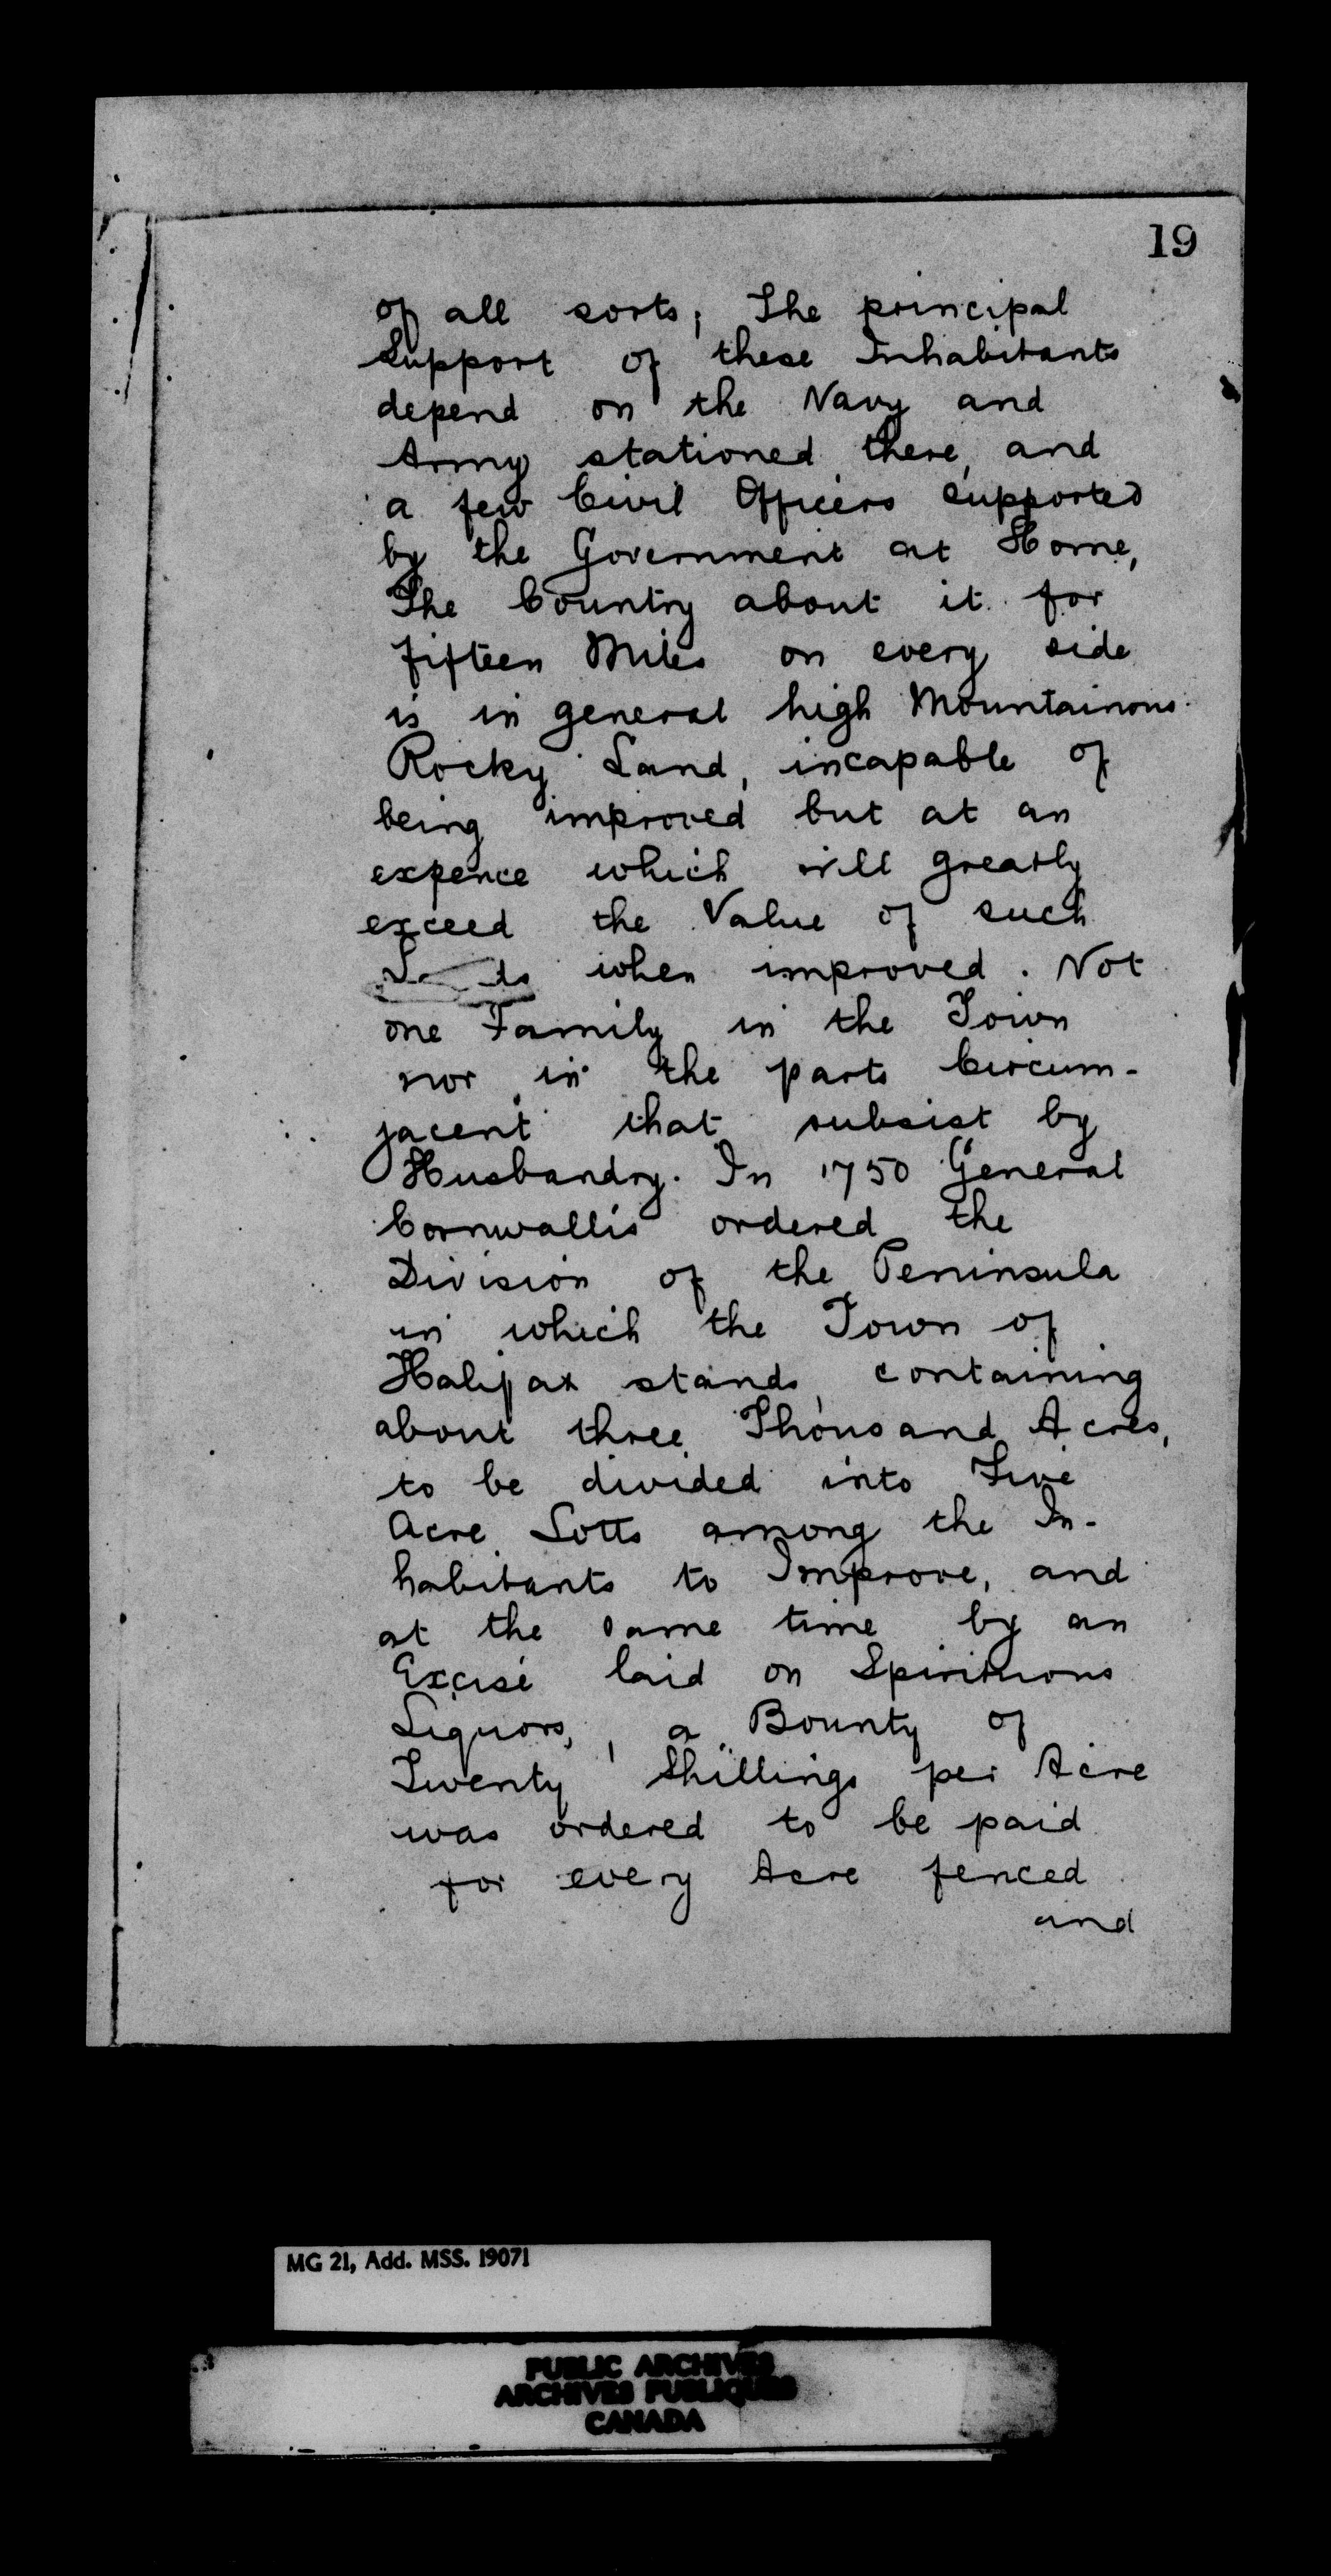 19
of all sorts; The principal
Support of these Inhabitants
depend on the Navy and
Army stationed there, and
a few Civil Officers supported
by the Government at Home,
The Country about it for
fifteen Miles on every side
is in general high Mountainous
Rocky Land, incapable of
being improved but at an
expence which will greatly
exceed the Value of such
when improved. Not
one Family in the Town
nor in the parts Circum-
jacent that subsist by
Husbandry. In 1750 General
Cornwallis ordered the
Division of the Peninsula
in which the Town of
Halifax stands, containing
about three Thousand Acres,
to be divided into Five
Acre Lotts among the In-
habitants to Improve, and
at the same time by an
Excise laid on Spirituous
Liquors, a Bounty of
Twenty Shillings per Acre
was ordered to be paid
for every Acre fenced
and
MG 21, Add. MSS. 19071
PUBLIC ARCHIVES
ARCHIVES PUBLIQUES
CANADA